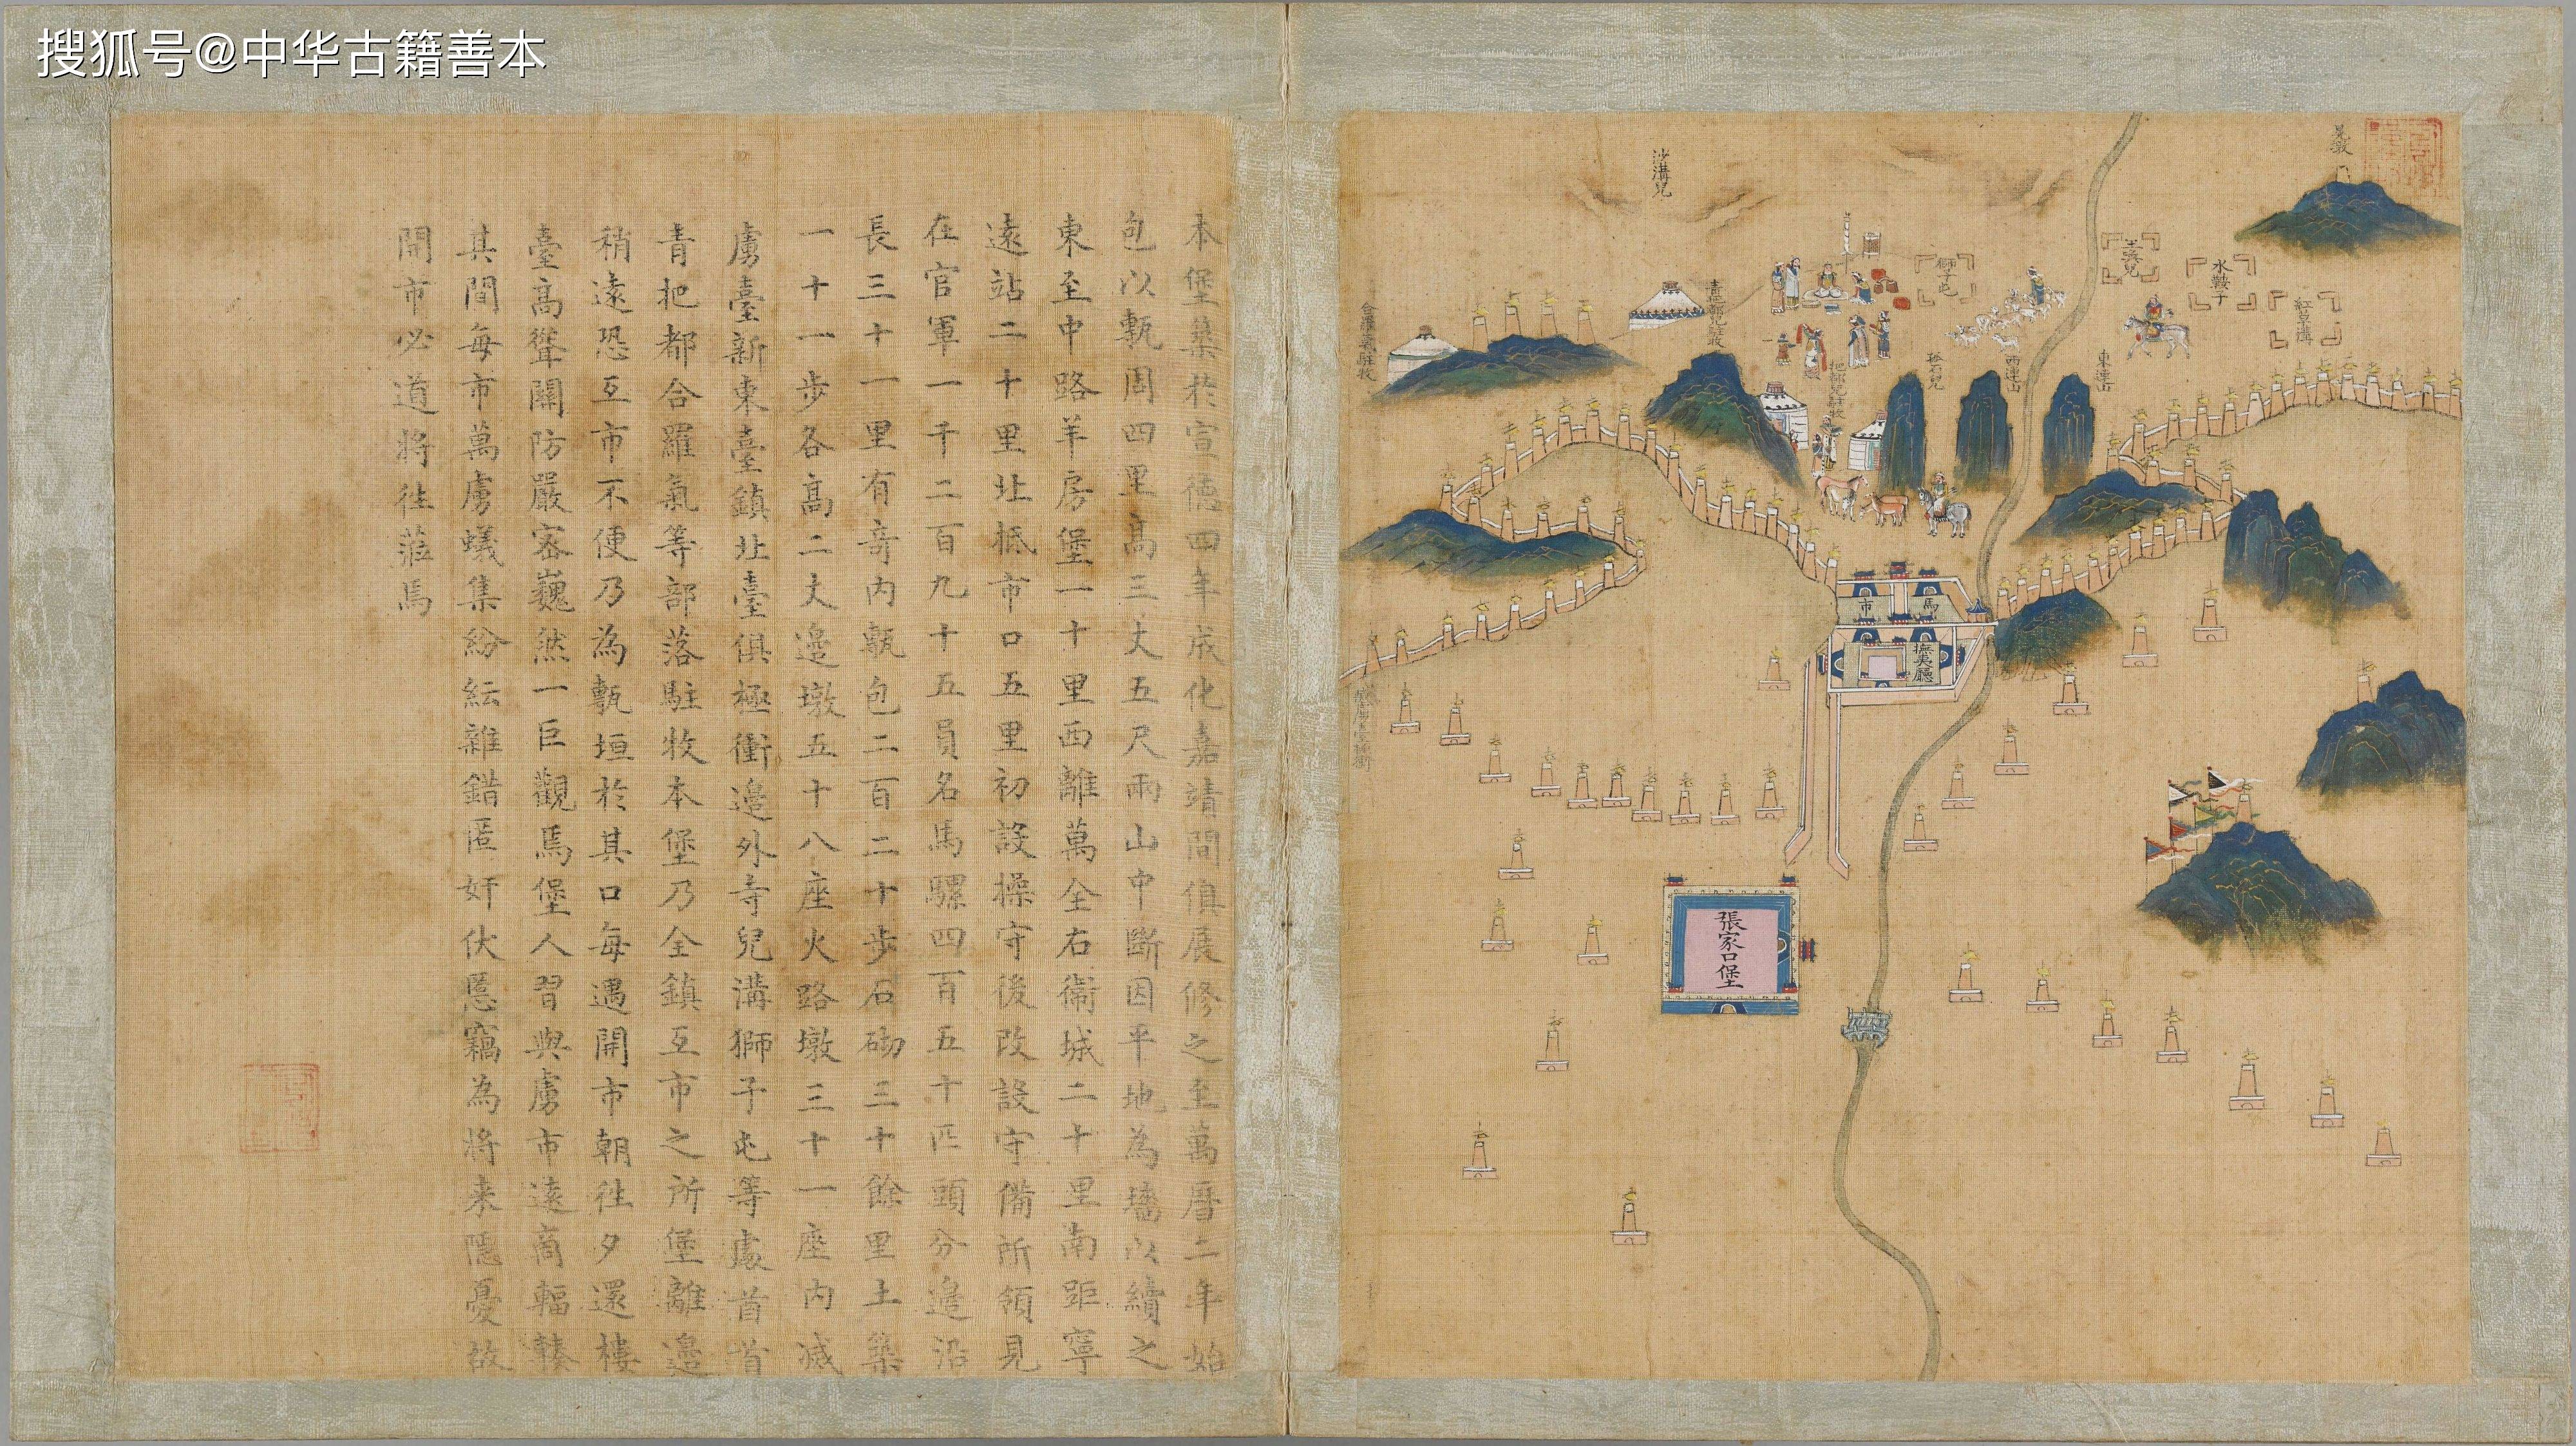 搜狐号@中华古籍善本
本堡築於宣德四年成化嘉靖間俱展修之至萬曆二年始
包以甎周四里高三丈五尺兩山中斷因平地為墻以續之
東至中路羊房堡一十里西離萬全右衞城二十里南距寧
遠站二十里北抵市口五里初設操守後改設守備所領見
在官軍一千二百九十五員名馬騾四百五十匹頭分邊沿
長三十一里有奇內甎包二百二十步石砌三十餘里土築
一十一步各高二丈邊墩五十八座火路墩三十一座內滅
虜臺新東臺鎮北臺俱極衝邊外寺兒溝獅子屯等處酋首
青把都合羅氣等部落駐牧本堡乃全鎮互市之所堡離邊
稍遠恐互市不便乃為甎垣於其口每遇開市朝往夕還樓
臺高聳關防嚴密巍然一巨觀焉堡人習與虜市遠商輻輳
其間每市萬虜蟻集紛紜雜錯匿奸伏慝竊為將来隱憂故
開市必道將往蒞焉
沙溝兒
水鞍子
獅子屯
合羅氣駐牧
青把都兒駐牧
把都兒駐牧
西連山
東連山
馬市
撫夷廳
張家口堡